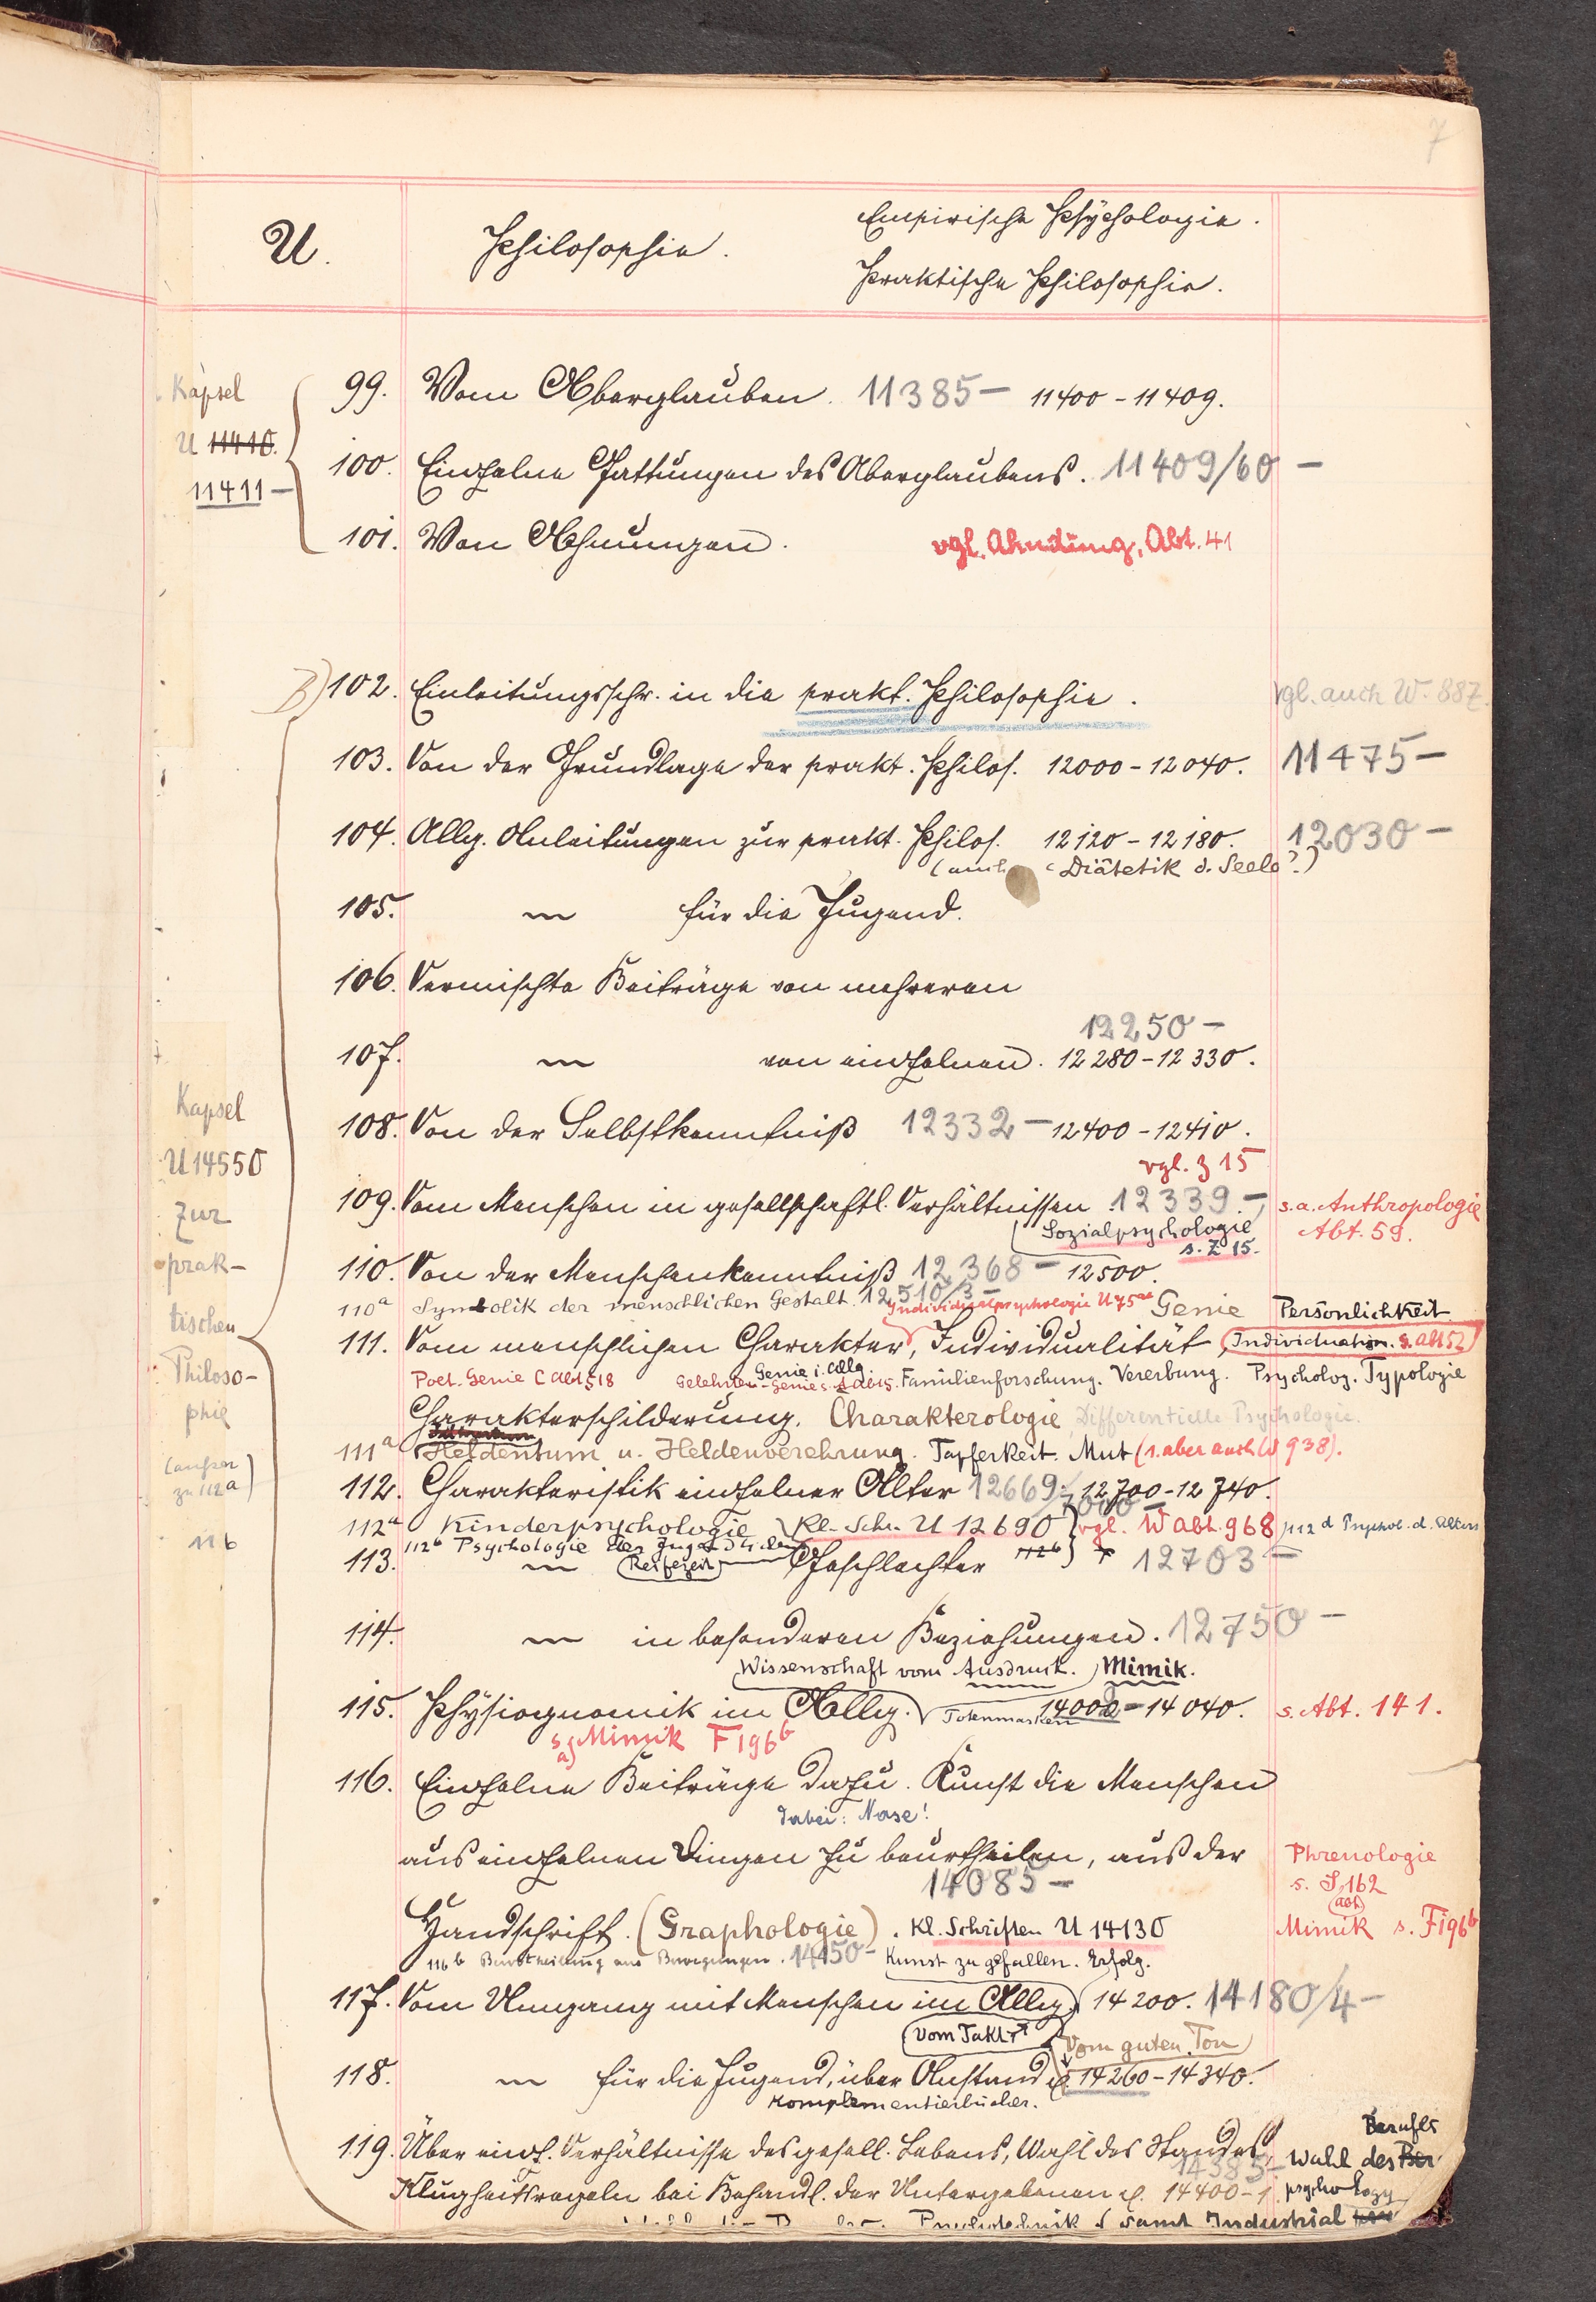 7
U.
Philosophie.
Empirische Psychologie.
Praktische Philosophie.
Kapsel
U 11410.
11411 –
99. Vom Aberglauben. 11385 – 11400 – 11409.
100. Einzelne Gattungen des Aberglaubens. 11409/60 –
101. Von Ahnungen. vgl. Ahndung, Abt. 41
B) 102. Einleitungsschr. in die prakt. Philosophie. vgl. auch W. 887.
103. Von der Grundlage der prakt. Philos. 12000 – 12040. 11475 –
104. Allg. Anleitungen zur prakt. Philos. 12120 – 12180. 12030 –
(auch Diätetik d. Seele?)
105. " für die Jugend.
106. Vermischte Beiträge von mehreren
12250 –
107. " von einzelnen. 12280 – 12330.
Kapsel
U 14550
zur
prak-
tischen
Philoso-
phie
(außer
zu 112a)
116
108. Von der Selbstkenntniß 12332 – 12400 – 12410.
vgl. Z 15
109. Vom Menschen in gesellschaftl. Verhältnissen 12339. – s.a. Anthropologie
Sozialpsychologie Abt. 59.
s. Z 15.
110. Von der Menschenkenntniß 12368 – 12500.
110a Symbolik der menschlichen Gestalt. 12510/3 – Individualpsychologie U 75 Genie Persönlichkeit
111. Vom menschlichen Charakter, Individualität, Individuation. s. Abt 52
Genie i. Allg.
Poet. Genie C Abt 518 Gelehrten-Genie s. A Abt 5. Familienforschung. Vererbung. Psycholog. Typologie
Charakterschilderung. Charakterologie Differentielle Psychologie.
111a Heldentum u. Heldenverehrung. Tapferkeit. Mut (s. aber auch W 938).
112. Charakteristik einzelner Alter 12669. 12700 – 12740.
112a Kinderpsychologie Kl. Schr. U 12690 vgl. W Abt. 968 112d Psychol. d. Alters
112b Psychologie der Jugendlichen
113. " (Reifezeit) Geschlechter 112b) 12703 –
114. " in besonderen Beziehungen. 12750 –
Wissenschaft vom Ausdruck. Mimik.
115. Physiognomik im Allg. Totenmasken 14000 – 14040. s. Abt. 141.
s. a) Mimik F 196b
116. Einzelne Beiträge dazu. Kunst die Menschen
dabei: Nase!
aus einzelnen Dingen zu beurtheilen, aus der Phrenologie
14085 – s. S 162
(Abt)
Handschrift. (Graphologie). Kl. Schriften U 14130 Mimik s. F 196b
116b Beurtheilung aus Bewegungen. 14150 – Kunst zu gefallen. Erfolg.
117. Vom Umgang mit Menschen im Allg. 14200. 14180/4 –
Vom Takt Vom guten Ton
118. " für die Jugend, über Anstand p. 14260 – 14340.
Komplementierbücher.
119. Über einz. Verhältnisse des gesell. Lebens, Wahl des Standes, Wahl des Berufes
14385 –
Klugheitsregeln bei Behandl. der Untergebenen p. 14400 – psychology
Psychotechnik samt Industrial